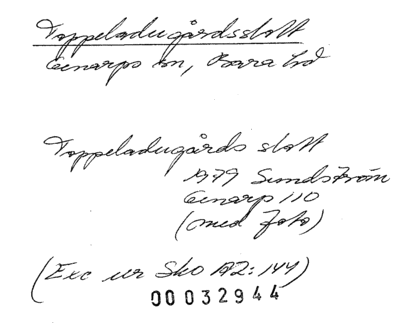 Toppeladugårdsslott
Genarps sn, Bara hd
Toppeladugårds slott
1979 Sundström
Genarp 110
(med foto)
(Exc ur Sko A2:144)
00032944